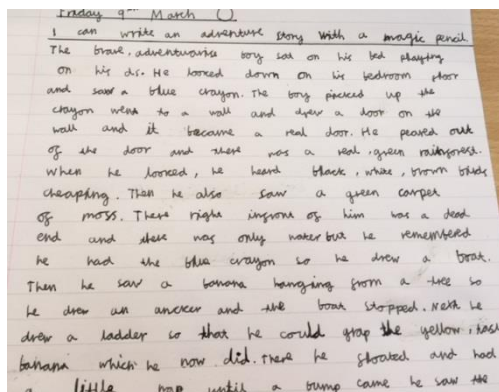 Friday 9th March
I can write an adventure story with a magic pencil
The brave, adventurous boy sat on his bed playing
on his ds. He looked down on his bedroom floor
and saw a blue crayon. The boy picked up the
crayon went to a wall and drew a door on the
wall and it became a real door. He peared out
of the door and there was a real, green rainforest.
When he looked, he heard black, white, brown birds
cheapting. Then he also saw a green carpet
of moss. There right infront of him was a dead
end and there was only water but he remembered
he had the blue crayon so he drew a boat.
Then he saw a banana hanging from a tree so
he drew an ancker and the boat stopped. Next he
drew a ladder so that he could grap the yellow,
banana which he now did. There he floated and had
a little nap until a bump came he saw the